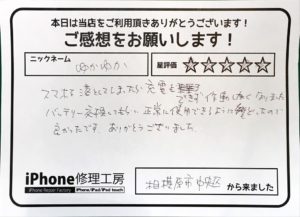 本日は当店をご利用頂きありがとうございます!
ご感想をお願いします!
ニックネーム
ゆかゆか
星評価
☆☆☆☆☆
スマホ落としてしまったら充電も
できず作動しなくなりました
バッテリー交換してもらい正常に使用できるように
なったので
良かったです。ありがとうございました。
iPhone修理工房
iPhone Repair Factory
iPhone/iPad/iPod touch
相模原市中央区
から来ました